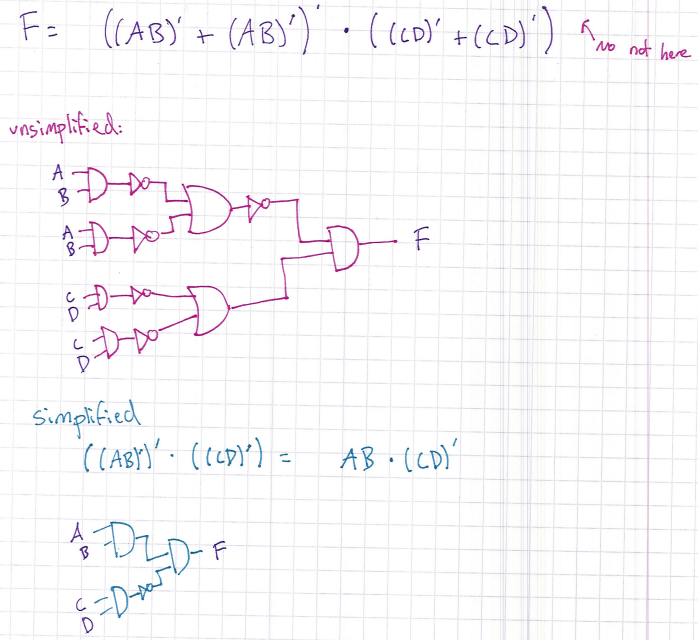 F = ((AB)' + (AB)')' · ((CD)' + (CD)')
No not here
unsimplified:
A
B
A
B
F
C
D
C
D
simplified
((AB)')' · ((CD)') = AB · (CD)'
A
B
F
C
D